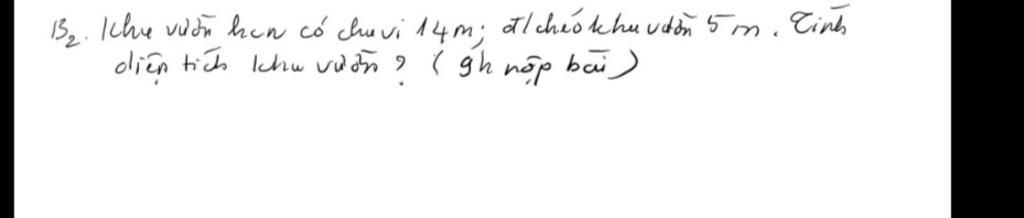 B₂. Khu vườn hcn có chu vi 14m; đ/chéo khu vườn 5m. Tính
diện tích khu vườn? (9h nộp bài)